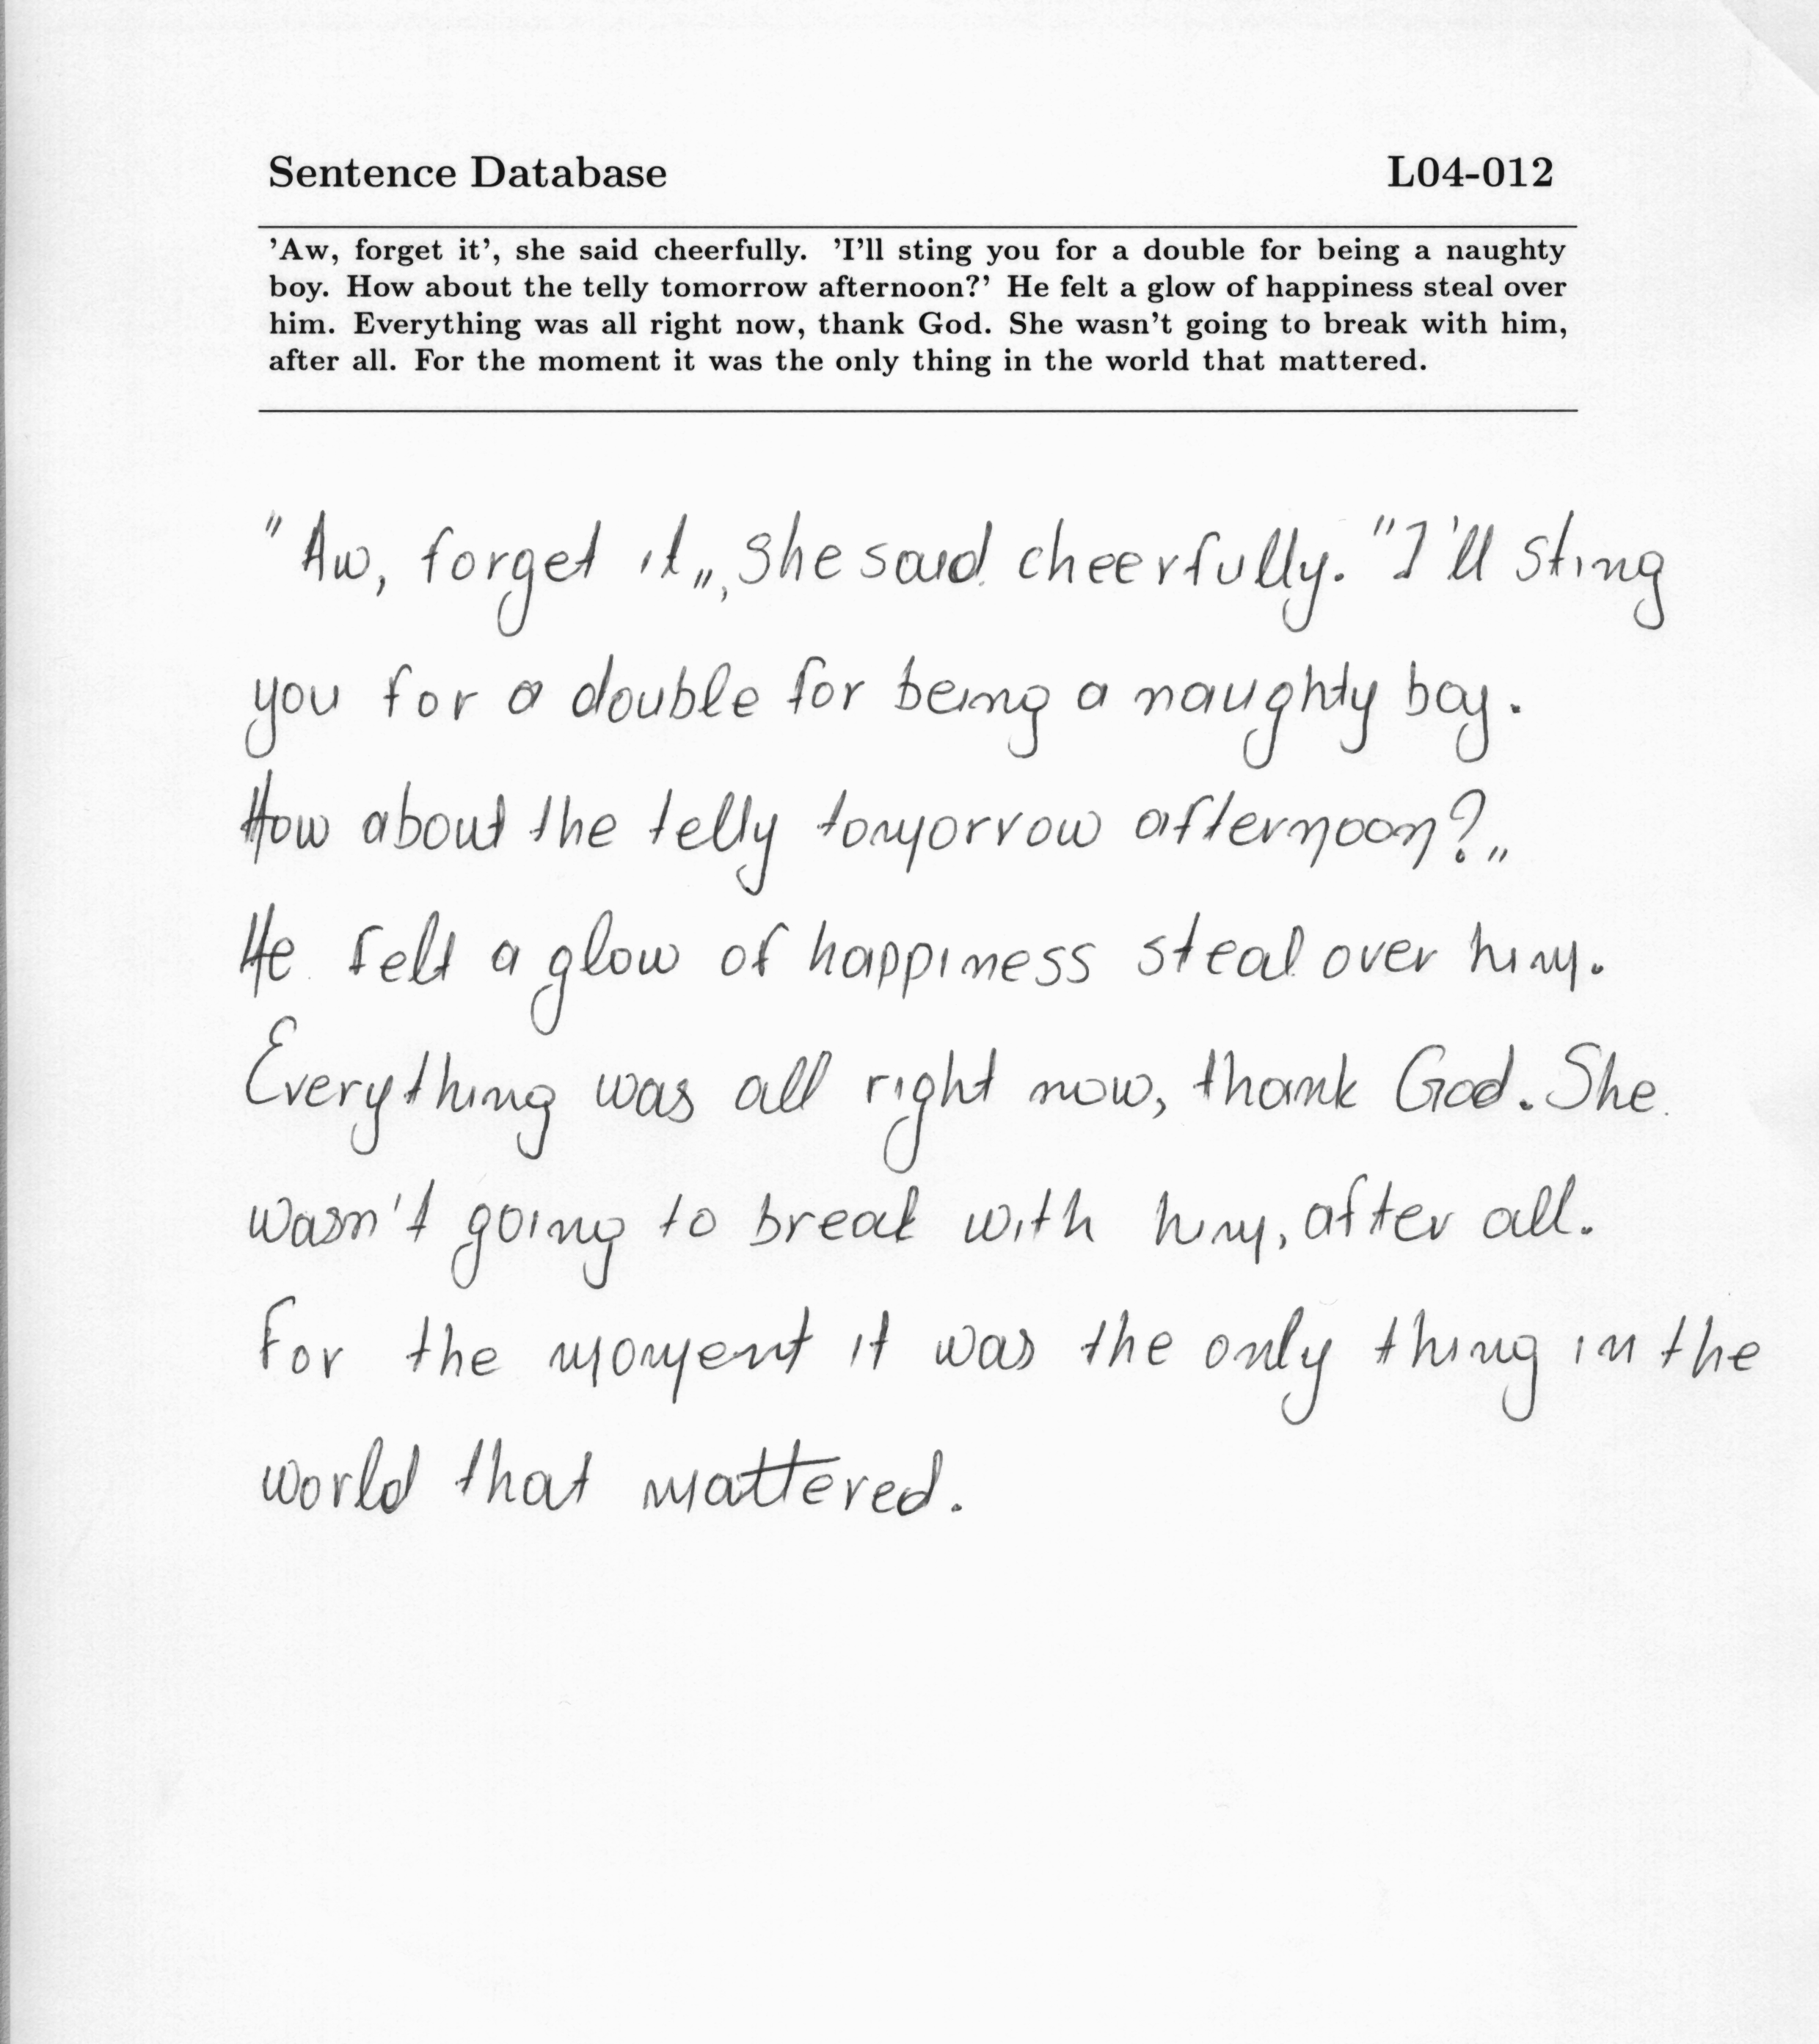 Sentence Database L04-012
'Aw, forget it', she said cheerfully. 'I'll sting you for a double for being a naughty
boy. How about the telly tomorrow afternoon?' He felt a glow of happiness steal over
him. Everything was all right now, thank God. She wasn't going to break with him,
after all. For the moment it was the only thing in the world that mattered.
"Aw, forget it„, she said cheerfully. "I'll sting
you for a double for being a naughty boy.
How about the telly tomorrow afternoon?„
He felt a glow of happiness steal over him.
Everything was all right now, thank God. She
wasn't going to break with him, after all.
For the moment it was the only thing in the
world that mattered.